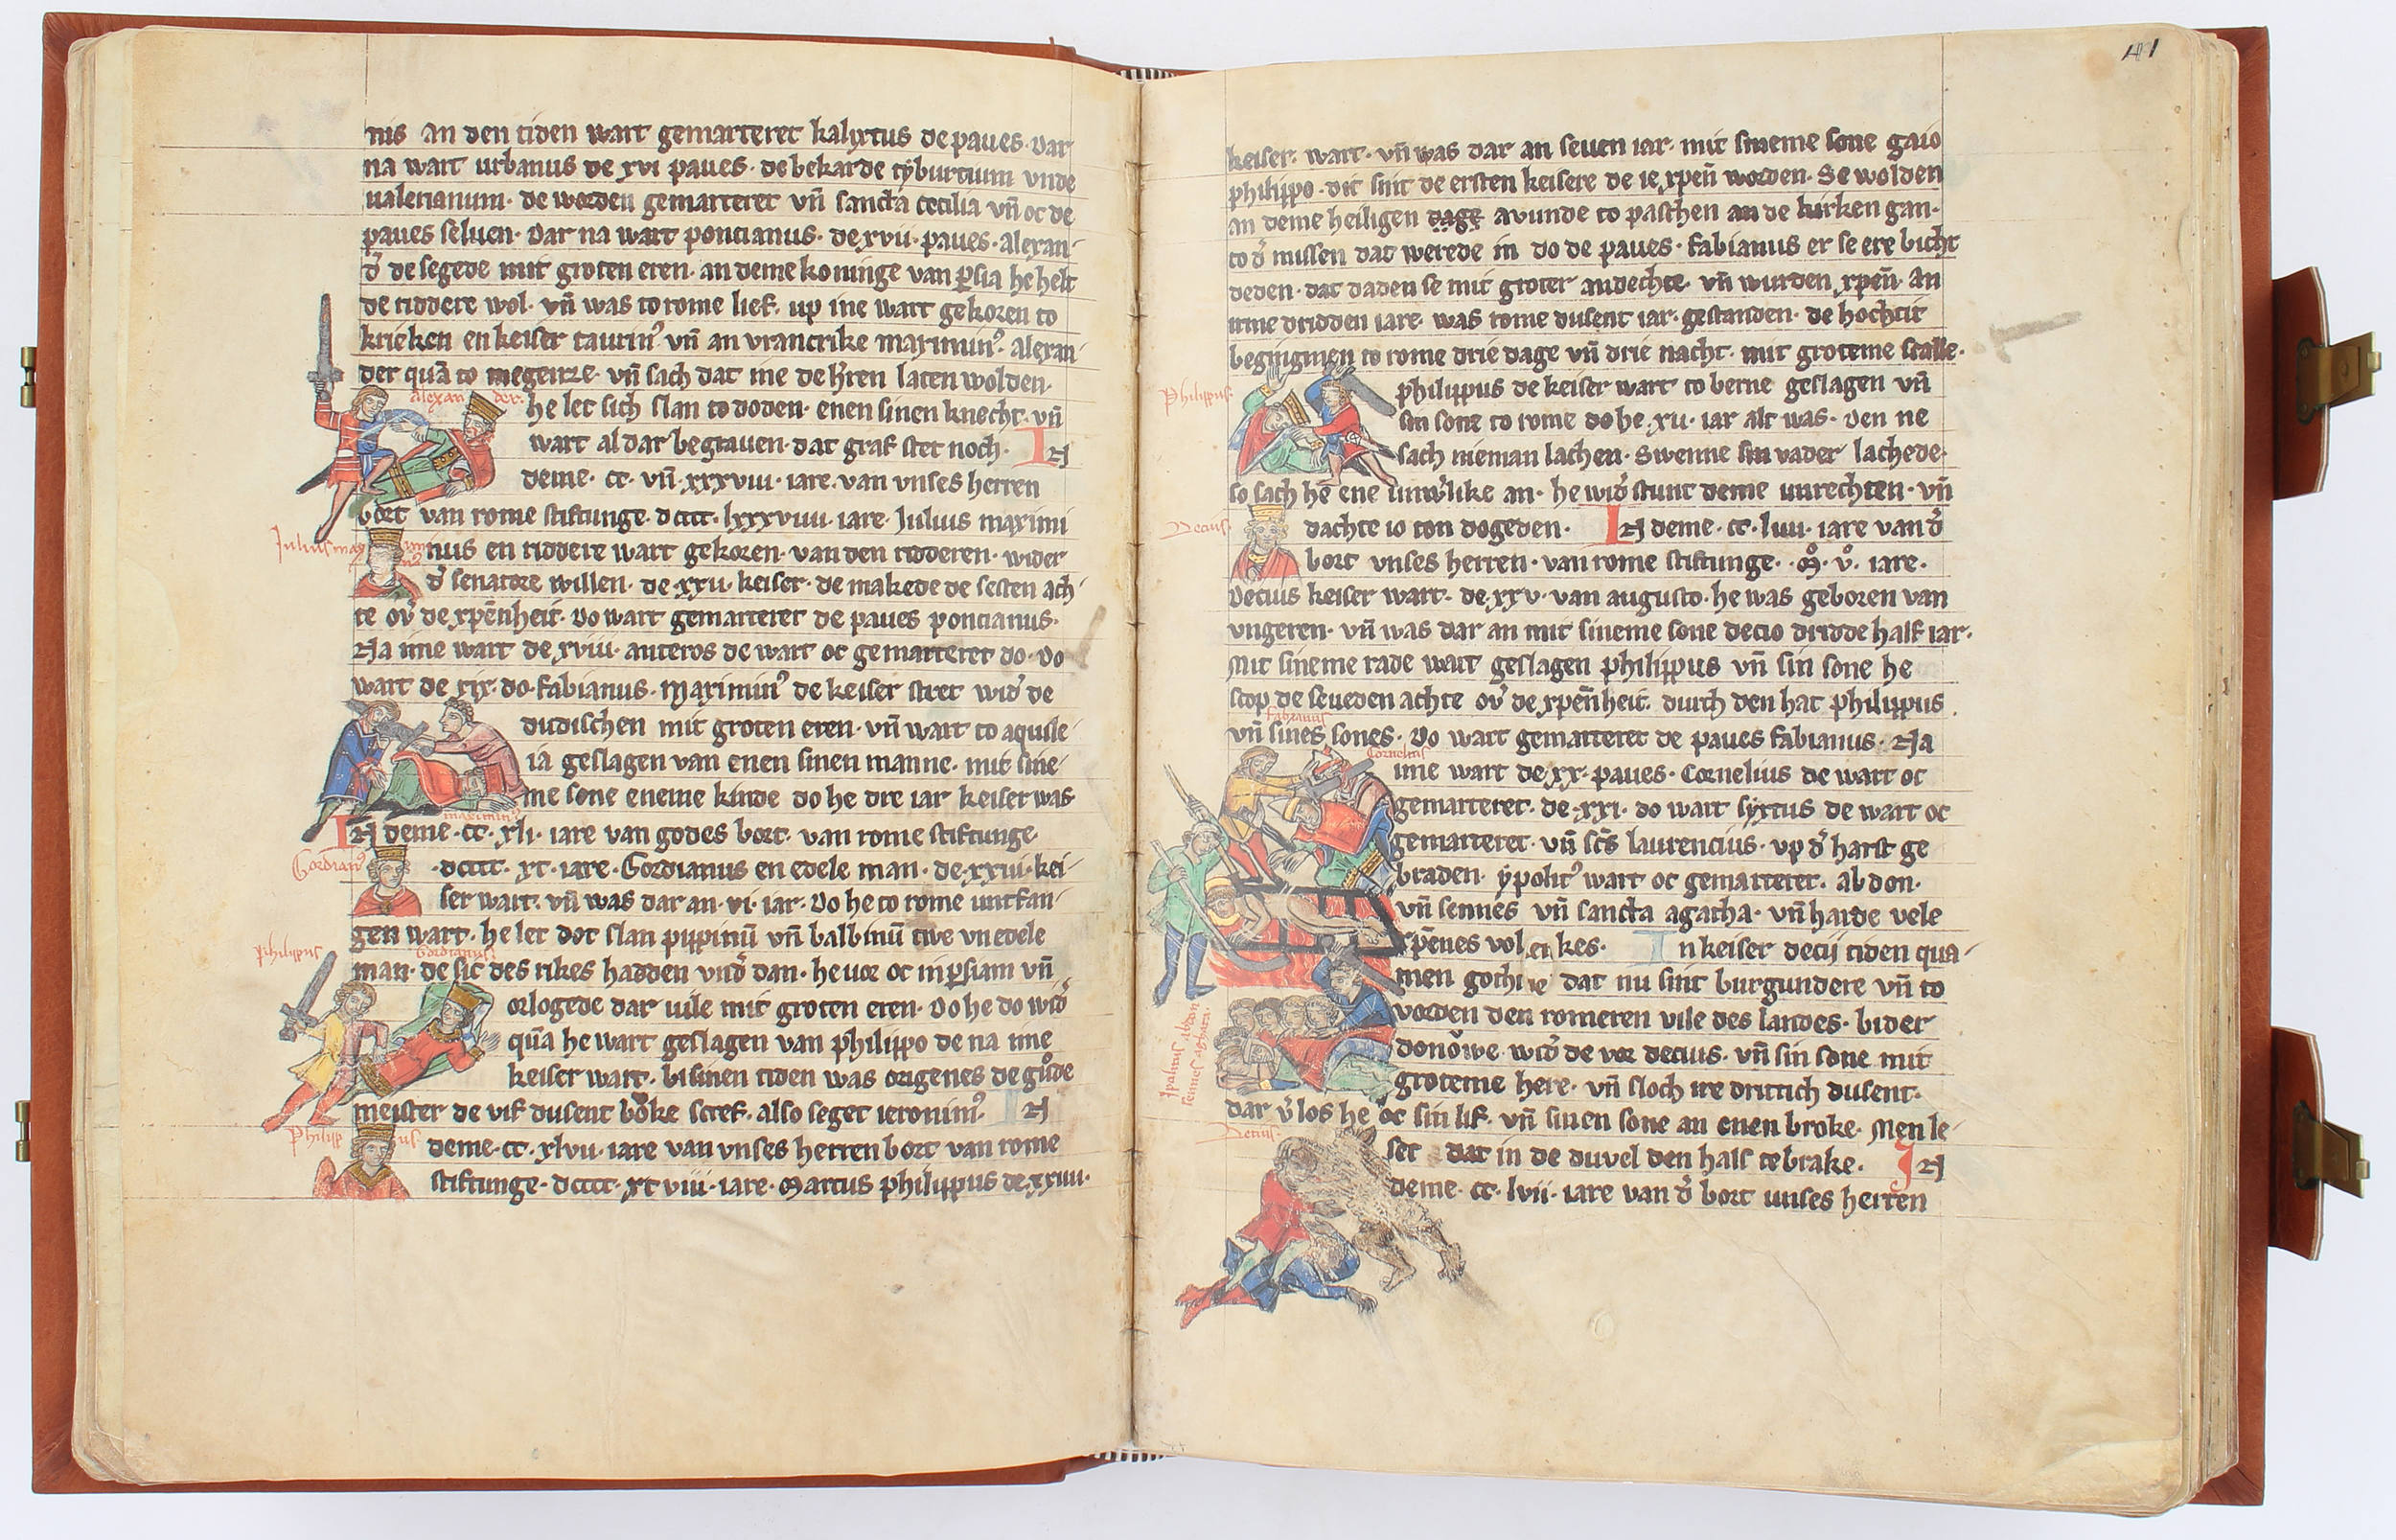 nis an den tiden wart gemarteret kalixtus de paues. Dar
na wart urbanus de xvi paues. de bekarde tyburtium vnde
ualerianum. de worden gemarteret vn̄ sancta cecilia vn̄ oc de
paues seluen. Dar na wart poncianus. de xvii. paues. alexan-
d͛ de segede mit groten eren. an deme koninge van ꝑsia he helt
de riddere wol. vn̄ was to rome lief. up ine wart gekoren to
krieken en keiser taurin᾿ vn̄ an vrancrike maximin᾿. alexan-
der quā to megenze. vn̄ sach dat ine de h͛ren laten wolden.
alexan der.
he let sich slan to doden. enen sinen knecht. vn̄
wart al dar begrauen. dat graf stet noch. IN
deme. cc. vn̄. xxxviii. iare. van vnses herren
bort van rome stiftunge. dcccc. lxxxviiii. iare. Iulius maximi
Iulius max imin᾿
nus en riddere wart gekoren. van den ridderen. wider
d͛ senatore willen. de. xxii. keiser. de makede de sesten ach-
te ov͛ de xp̄enheit. Do wart gemarteret de paues poncianus.
Na ime wart de xviii. anteros de wart oc gemarteret do. Do
wart de xix. do. fabianus. Maximin᾿ de keiser stret wid͛ de
dudischen mit groten eren. vn̄ wart to aquile-
ia geslagen van enen sinen manne. mit sine-
me sone eneme kinde do he dre iar keiser was.
maximin᾿
IN deme. cc. xli. iare van godes bort. van rome stiftunge
Gordian᾿
. dcccc. xc. iare. Gordianus en edele man. de. xxiii. kei-
ser wart. vn̄ was dar an. vi. iar. Do he to rome untfan-
gen wart. he let dot slan pippinū vn̄ balbinū twe vnedele
philippus
Gordianus
man. de sic des rikes hadden vnd͛ dan. he uor oc in ꝑsiam vn̄
orlogede dar uile mit groten eren. Do he do wid͛
quā he wart geslagen van philippo de na ime
keiser wart. bi sinen tiden was origenes de gůde
meister de vif dusent bůke scref. also seget ieronim᾿. IN
Philipp us
deme. cc. xlvii. iare van vnses herren bort van rome
stiftunge. dcccc. xc viii. iare. Marcus philippus de. xxiiii.
41
keiser. wart. vn̄ was dar an seuen iar. mit sineme sone gaio
philippo. dit sint de ersten keisere de ie xp̄en̄ worden. Se wolden
an deme heiligen dage avunde to paschen an de kirken gan.
to d͛ missen dat werede in do de paues. fabianus er se ere bicht
deden. dat daden se mit groter andechte. vn̄ wurden xp̄en̄. An
irme dridden iare. was rome dusent iar. gestanden. de hochtit
begingmen to rome drie dage vn̄ drie nacht. mit groteme scalle.
Philippus.
philippus de keiser wart to berne geslagen vn̄
sin sone to rome do he. xii. iar alt was. Den ne
sach nieman lachen. Swenne sin vader lachede.
so sach he ene unw͛like an. he wid͛stunt deme unrechten. vn̄
Decius.
dachte io ton dogeden. IN deme. cc. liiii. iare van d͛
bort vnses herren. van rome stiftunge. M̊. v̊. iare.
Decius keiser wart. de. xxv. van augusto. he was geboren van
vngeren. vn̄ was dar an mit sineme sone decio dridde half iar.
Mit sineme rade wart geslagen philippus vn̄ sin sone he
stop de seueden achte ov͛ de xp̄enheit. durch den hat philippus
fabianus
vn̄ sines sones. Do wart gemarteret de paues fabianus. Na
Cornelius
ime wart de. xx. paues. Cornelius de wart oc
gemarteret. de. xxi. do wart syxtus de wart oc
gemarteret. vn̄ sc̄s laurencius. vp d͛ harst ge
braden. ypolit᾿ wart oc gemarteret. abdon.
vn̄ sennes vn̄ sancta agatha. vn̄ harde vele
xp̄enes volckes. In keiser decij tiden qua-
men gothi dat nu sint burgundere vn̄ to
vorden den romeren vile des landes. bi der
donowe. wid͛ de vor decius. vn̄ sin sone mit
groteme here. vn̄ sloch ire drittich dusent.
dar v͛los he oc sin lif. vn̄ sinen sone an enen broke. Men le-
Decius.
set dat in de duvel den hals tebrake. IN
deme. cc. lvii. iare van d͛ bort unses herren